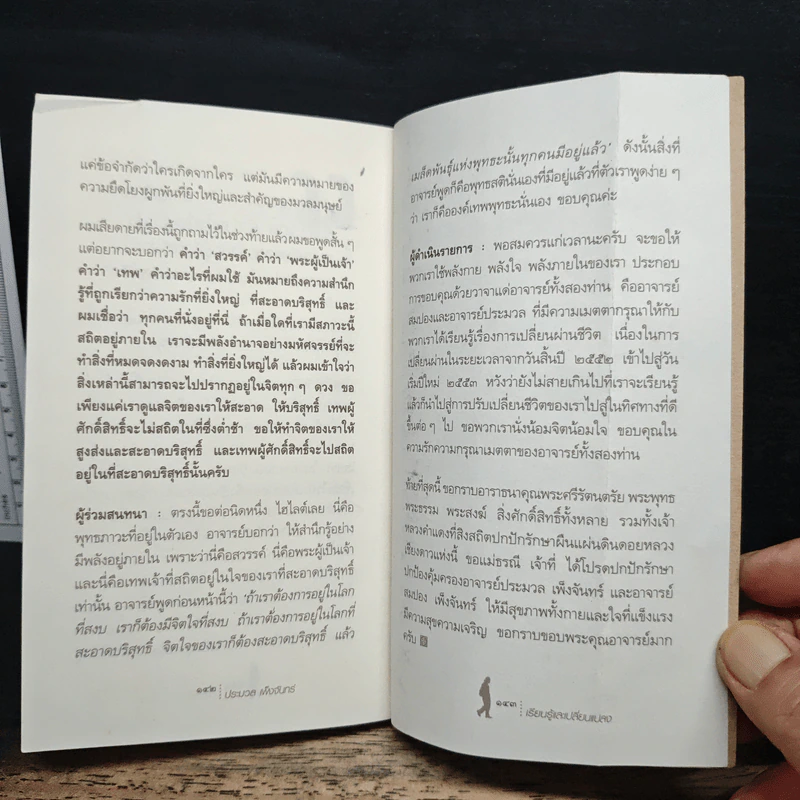 แค่ข้อจำกัดว่าใครเกิดจากใคร แต่มันมีความหมายของ
ความยึดโยงผูกพันที่ยิ่งใหญ่และสำคัญของมวลมนุษย์
ผมเสียดายที่เรื่องนี้ถูกถามไว้ในช่วงท้ายแล้วผมขอพูดสั้น ๆ
แต่อยากจะบอกว่า คำว่า ‘สวรรค์’ คำว่า ‘พระผู้เป็นเจ้า’
คำว่า ‘เทพ’ คำว่าอะไรที่ผมใช้ มันหมายถึงความสำนึก
รู้ที่ถูกเรียกว่าความรักที่ยิ่งใหญ่ ที่สะอาดบริสุทธิ์ และ
ผมเชื่อว่า ทุกคนที่นั่งอยู่ที่นี่ ถ้าเมื่อใดที่เรามีสภาวะนี้
สถิตอยู่ภายใน เราจะมีพลังอำนาจอย่างมหัศจรรย์ที่จะ
ทำสิ่งที่หมดจดงดงาม ทำสิ่งที่ยิ่งใหญ่ได้ แล้วผมเข้าใจว่า
สิ่งเหล่านี้สามารถจะไปปรากฏอยู่ในจิตทุก ๆ ดวง ขอ
เพียงแค่เราดูแลจิตของเราให้สะอาด ให้บริสุทธิ์ เทพผู้
ศักดิ์สิทธิ์จะไม่สถิตในที่ซึ่งต่ำช้า ขอให้ทำจิตของเราให้
สูงส่งและสะอาดบริสุทธิ์ และเทพผู้ศักดิ์สิทธิ์จะไปสถิต
อยู่ในที่สะอาดบริสุทธิ์นั้นครับ
ผู้ร่วมสนทนา : ตรงนี้ขอต่อนิดหนึ่ง ไฮไลต์เลย นี่คือ
พุทธภาวะที่อยู่ในตัวเอง อาจารย์บอกว่า ให้สำนึกรู้อย่าง
มีพลังอยู่ภายใน เพราะว่านี่คือสวรรค์ นี่คือพระผู้เป็นเจ้า
และนี่คือเทพเจ้าที่สถิตอยู่ในใจของเราที่สะอาดบริสุทธิ์
เท่านั้น อาจารย์พูดก่อนหน้านี้ว่า ‘ถ้าเราต้องการอยู่ในโลก
ที่สงบ เราก็ต้องมีจิตใจที่สงบ ถ้าเราต้องการอยู่ในโลกที่
สะอาดบริสุทธิ์ จิตใจของเราก็ต้องสะอาดบริสุทธิ์ แล้ว
๑๔๒ ประมวล เพ็งจันทร์
เมล็ดพันธุ์แห่งพุทธะนั้นทุกคนมีอยู่แล้ว’ ดังนั้นสิ่งที่
อาจารย์พูดก็คือพุทธสตินั่นเองที่มีอยู่แล้วที่ตัวเราพูดง่าย ๆ
ว่า เราก็คือองค์เทพพุทธะนั่นเอง ขอบคุณค่ะ
ผู้ดำเนินรายการ : พอสมควรแก่เวลานะครับ จะขอให้
พวกเราใช้พลังกาย พลังใจ พลังภายในของเรา ประกอบ
การขอบคุณด้วยวาจาแด่อาจารย์ทั้งสองท่าน คืออาจารย์
สมปองและอาจารย์ประมวล ที่มีความเมตตากรุณาให้กับ
พวกเราได้เรียนรู้เรื่องการเปลี่ยนผ่านชีวิต เนื่องในการ
เปลี่ยนผ่านในระยะเวลาจากวันสิ้นปี ๒๕๕๒ เข้าไปสู่วัน
เริ่มปีใหม่ ๒๕๕๓ หวังว่ายังไม่สายเกินไปที่เราจะเรียนรู้
แล้วก็นำไปสู่การปรับเปลี่ยนชีวิตของเราไปสู่ในทิศทางที่ดี
ขึ้นต่อ ๆ ไป ขอพวกเรานั่งน้อมจิตน้อมใจ ขอบคุณใน
ความรักความกรุณาเมตตาของอาจารย์ทั้งสองท่าน
ท้ายที่สุดนี้ ขอกราบอาราธนาคุณพระศรีรัตนตรัย พระพุทธ
พระธรรม พระสงฆ์ สิ่งศักดิ์สิทธิ์ทั้งหลาย รวมทั้งเจ้า
หลวงคำแดงที่สิงสถิตปกปักรักษาผืนแผ่นดินดอยหลวง
เชียงดาวแห่งนี้ ขอแม่ธรณี เจ้าที่ ได้โปรดปกปักรักษา
ปกป้องคุ้มครองอาจารย์ประมวล เพ็งจันทร์ และอาจารย์
สมปอง เพ็งจันทร์ ให้มีสุขภาพทั้งกายและใจที่แข็งแรง
มีความสุขความเจริญ ขอกราบขอบพระคุณอาจารย์มาก
ครับ
๑๔๓ เรียนรู้และเปลี่ยนแปลง